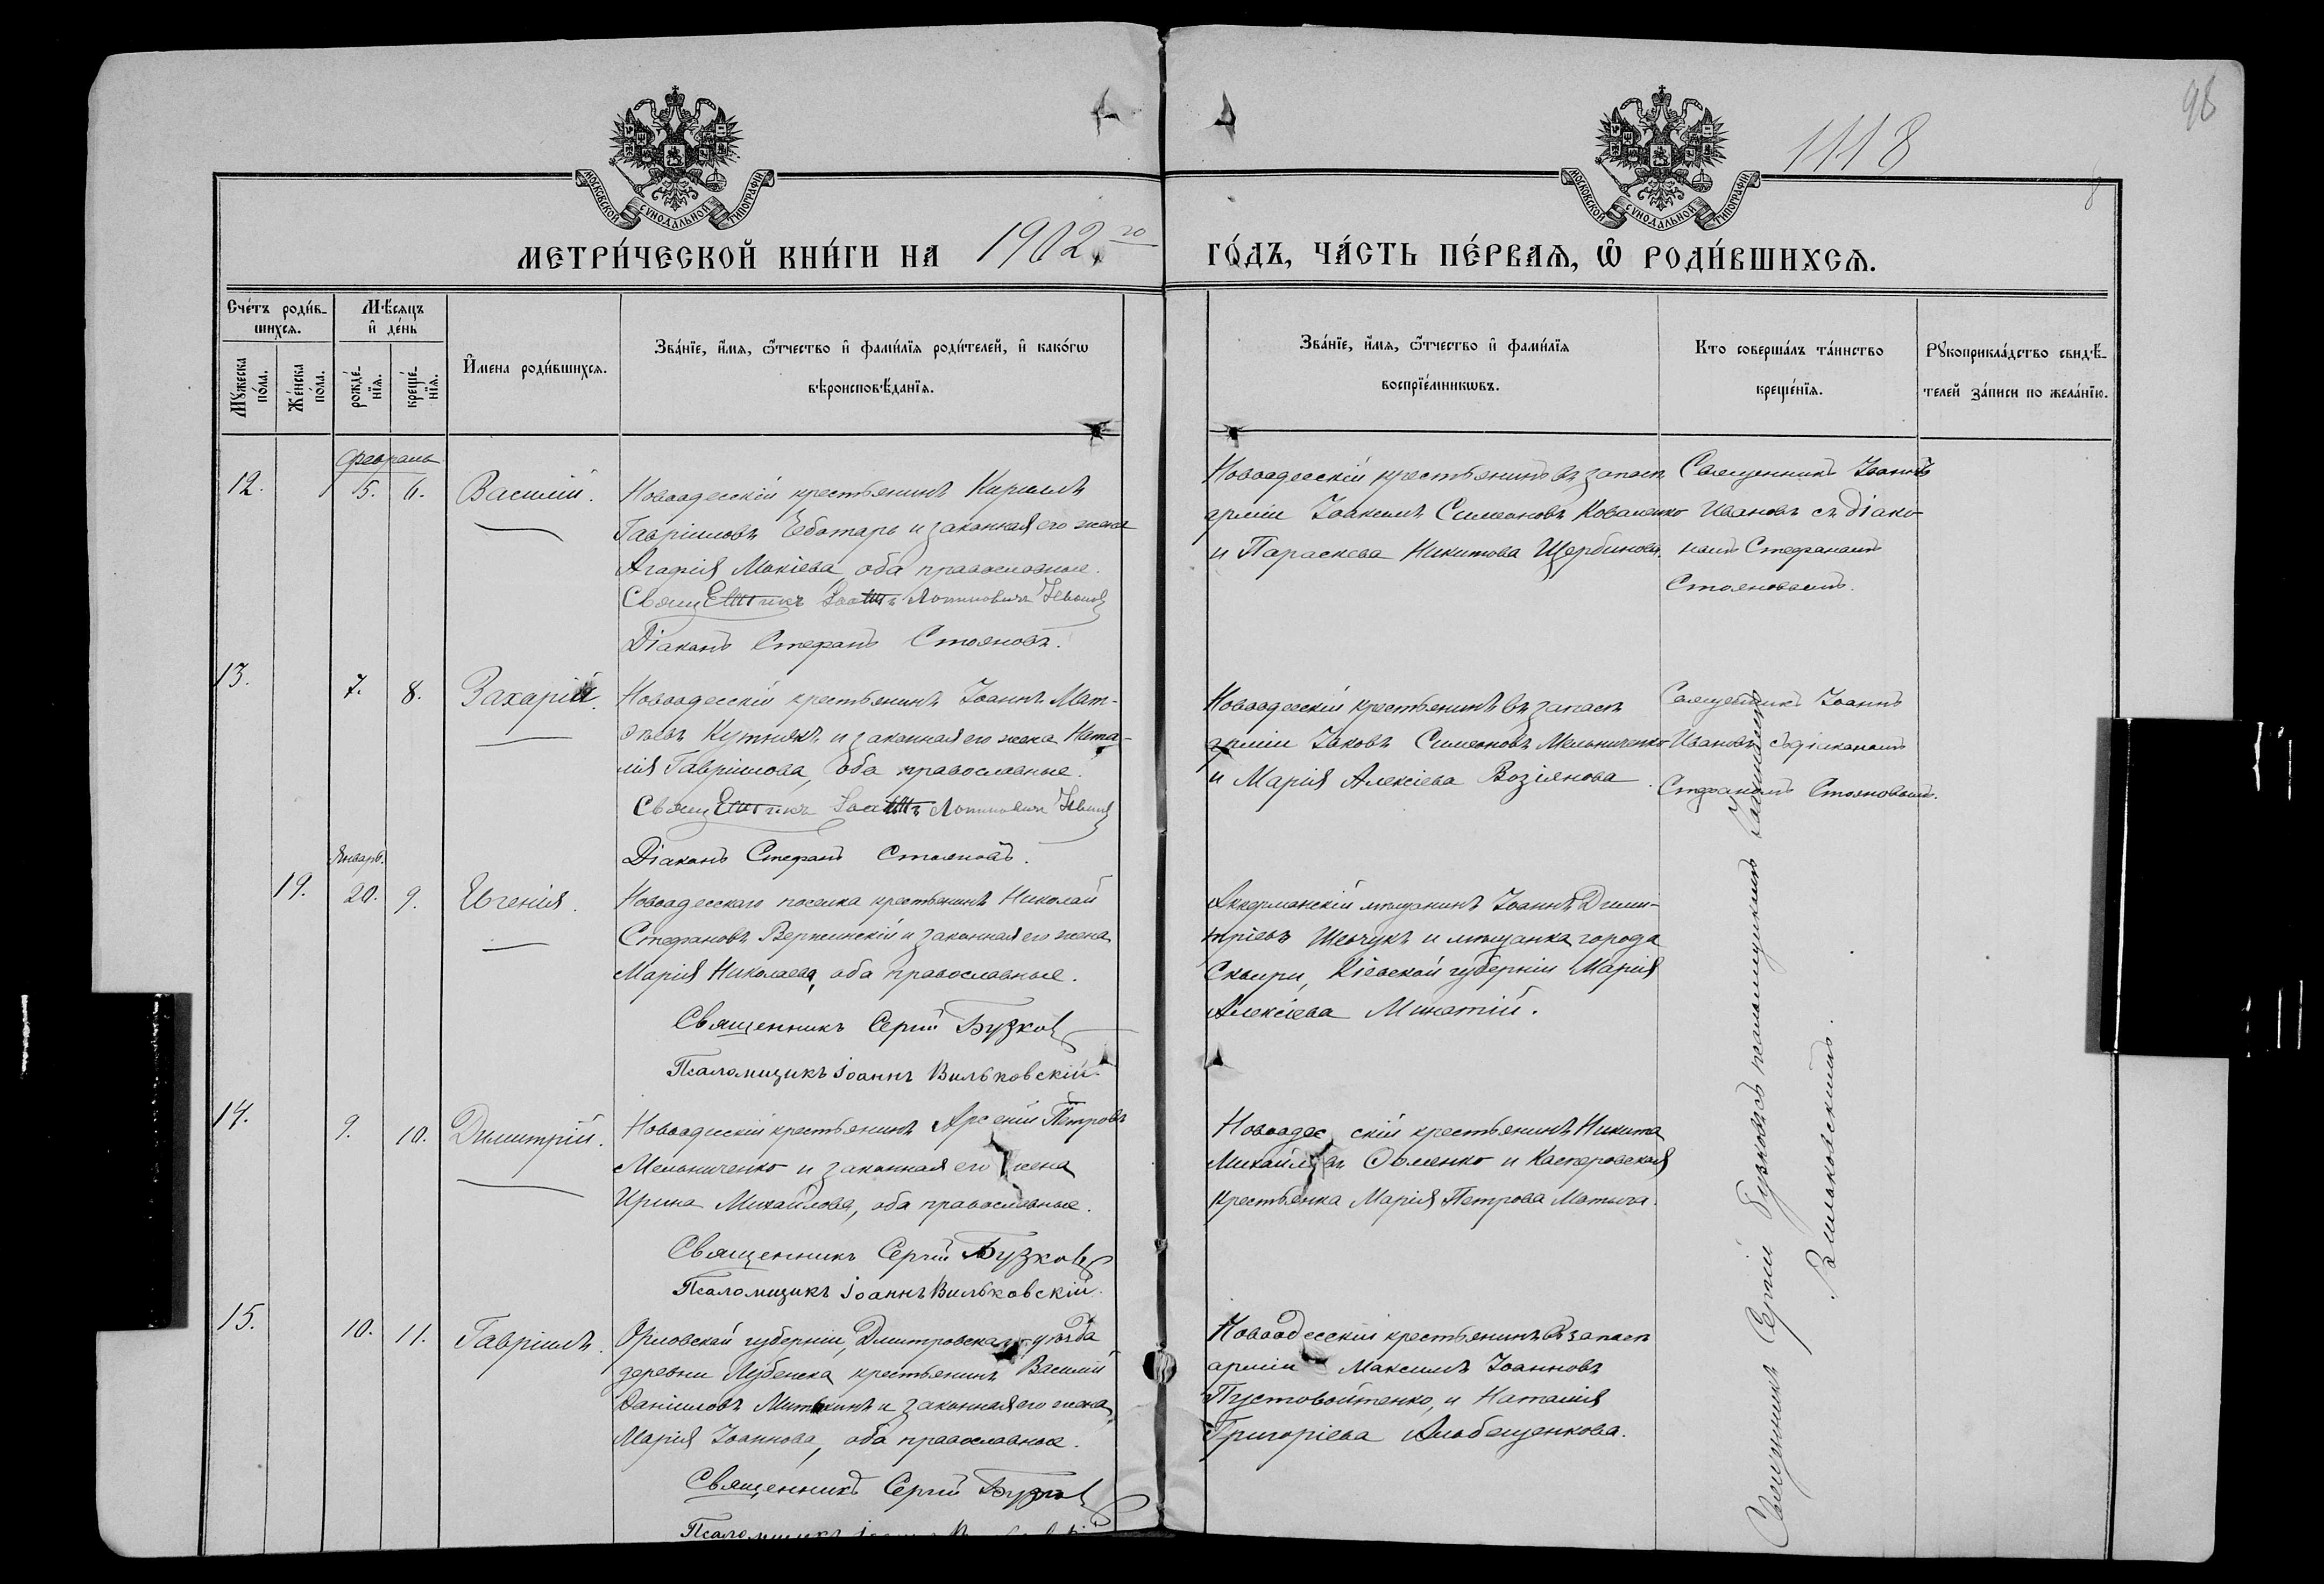 98
1118
8
МОСКОВСКОЙ СУНОДАЛЬНОЙ ТИПОГРАФІИ
МОСКОВСКОЙ СУНОДАЛЬНОЙ ТИПОГРАФІИ
МЕТРИ́ЧЕСКОЙ КНИ́ГИ НА 1902 го
ГО́ДЪ, ЧА́СТЬ ПЕ́РВАѦ, Ѽ РОДИ́ВШИХСѦ.
Сче́тъ роди́в-
шихсѧ.
Мѣ́сѧцъ
и҆ де́нь
Мꙋ́жеска по́ла.
Же́нска по́ла.
рожде́-
нїѧ.
креще́-
нїѧ.
И҆мена роди́вшихсѧ.
Зва́нїе, и҆́мѧ, ѻ҆́тчество и҆ фами́лїѧ роди́телей, и҆ како́гѡ
вѣроисповѣ́данїѧ.
Зва́нїе, и҆́мѧ, ѻ҆́тчество и҆ фами́лїѧ
воспрїе́мникѡвъ.
Кто соверша́лъ та́инство
креще́нїѧ.
Рꙋкоприкла́дство свидѣ́-
телей за́писи по жела́нїю.
Февраль
12.
5. 6.
Василій.
Новоодесскій крестьянинъ Кириллъ
Гавріиловъ Чеботарь и законная его жена
Агафія Мокіева, оба православные.
Священникъ Іоаннъ Логиновичъ Ивановъ
Діаконъ Стефанъ Стояновъ.
Новоодесскій крестьянинъ въ запасѣ
арміи Іоакимъ Симеоновъ Коваленко
и Параскева Никитова Щербинова.
Священникъ Іоаннъ
Ивановъ съ діако-
номъ Стефаномъ
Стояновымъ.
13.
7. 8.
Захарій.
Новоодесскій крестьянинъ Іоаннъ Мат-
ѳеевъ Кутнякъ и законная его жена Ната-
лія Гавріилова, оба православные.
Священникъ Іоаннъ Логиновичъ Ивановъ
Діаконъ Стефанъ Стояновъ.
Новоодесскій крестьянинъ въ запасѣ
арміи Іаковъ Симеоновъ Мельниченко
и Марія Алексіева Возіянова.
Священникъ Іоаннъ
Ивановъ съ діакономъ
Стефаномъ Стояновымъ.
Январь.
19.
20. 9.
Евгенія.
Новоодесскаго поселка крестьянинъ Николай
Стефановъ Вержинскій и законная его жена
Марія Николаева, оба православные.
Священникъ Сергій Бузковъ
Псаломщикъ Іоаннъ Вильковскій.
Аккерманскій мѣщанинъ Іоаннъ Дими-
тріевъ Шевчукъ и мѣщанка города
Сквири, Кіевской губерніи Марія
Алексіева Минатій.
14.
9. 10.
Димитрій.
Новоодесскій крестьянинъ Арсеній Петровъ
Мельниченко и законная его жена
Ирина Михайлова, оба православные.
Священникъ Сергій Бузковъ
Псаломщикъ Іоаннъ Вильковскій.
Новоодесскій крестьянинъ Никита
Михайловъ Овленко и Касперовская
крестьянка Марія Петрова
15.
10. 11.
Гавріилъ.
Орловской губерніи, Дмитровскаго уѣзда
деревни Лубенска крестьянинъ Василій
Даніиловъ Митькинъ и законная его жена
Марія Іоаннова, оба православные.
Священникъ Сергій Бузковъ
Псаломщикъ
Новоодесскій крестьянинъ въ запасѣ
арміи Максимъ Іоанновъ
Пустовойтенко, и Наталія
Григоріева
Священникъ Сергій Бузковъ съ псаломщикомъ Іоанномъ
Вильковскимъ.